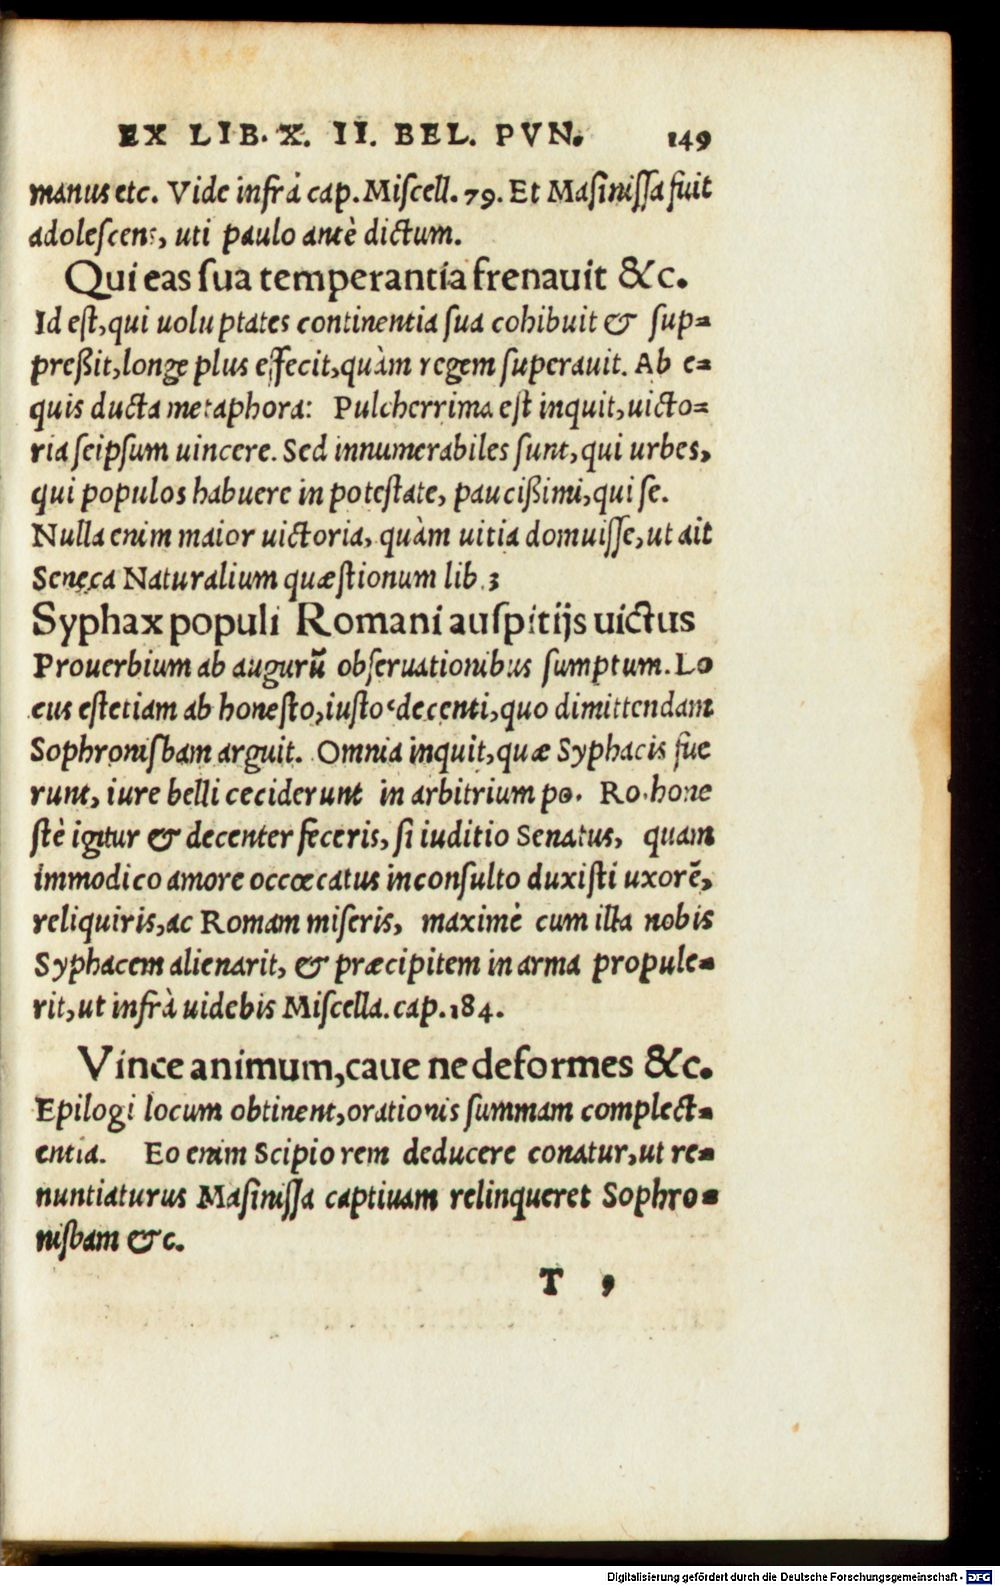 EX LIB. X. II. BEL. PVN. 149
manus etc. Vide infrà cap. Miſcell. 79. Et Maſiniſſa fuit
adoleſcens, uti paulo antè dictum.
Qui eas ſua temperantia frenauit &c.
Id eſt, qui uoluptates continentia ſua cohibuit & ſup=
preßit, longe plus effecit, quàm regem ſuperauit. Ab e=
quis ducta metaphora: Pulcherrima eſt inquit, uicto=
ria ſeipſum uincere. Sed innumerabiles ſunt, qui urbes,
qui populos habuere in poteſtate, paucißimi, qui ſe.
Nulla enim maior uictoria, quàm uitia domuiſſe, ut ait
Seneca Naturalium quæſtionum lib. 3
Syphax populi Romani auſpitijs uictus
Prouerbium ab augurū obſeruationibus ſumptum. Lo
cus eſt etiam ab honeſto, iuſto decenti, quo dimittendam
Sophronisbam arguit. Omnia inquit, quæ Syphacis fue
runt, iure belli ceciderunt in arbitrium po. Ro. hone
ſtè igitur & decenter feceris, ſi iuditio Senatus, quam
immodico amore occœcatus inconſulto duxiſti uxorē,
reliquiris, ac Romam miſeris, maximè cum illa nobis
Syphacem alienarit, & præcipitem in arma propule=
rit, ut infrà uidebis Miſcella. cap. 184.
Vince animum, caue ne deformes &c.
Epilogi locum obtinent, orationis ſummam complect=
entia. Eo enim Scipio rem deducere conatur, ut re=
nuntiaturus Maſiniſſa captiuam relinqueret Sophro=
nisbam &c.
T ,
Digitalisierung gefördert durch die Deutsche Forschungsgemeinschaft - DFG